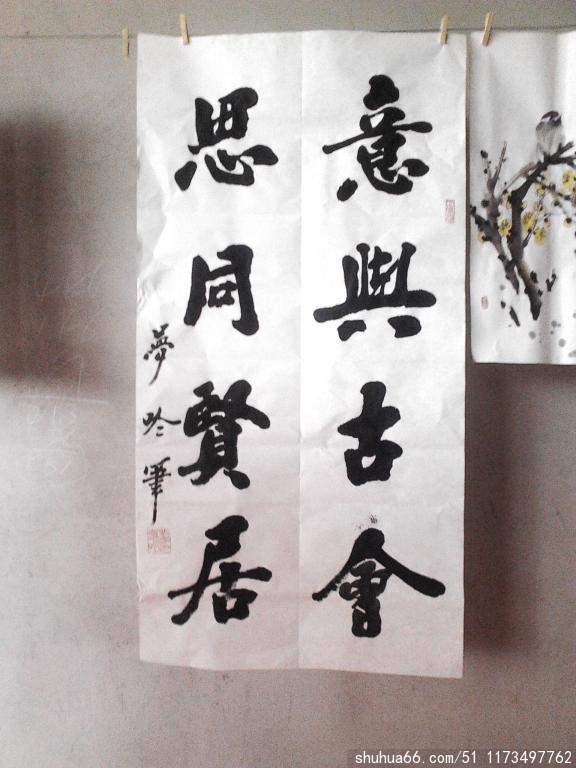 意與古會
思同賢居
夢吟筆
shuhua66.com/51 1173497762